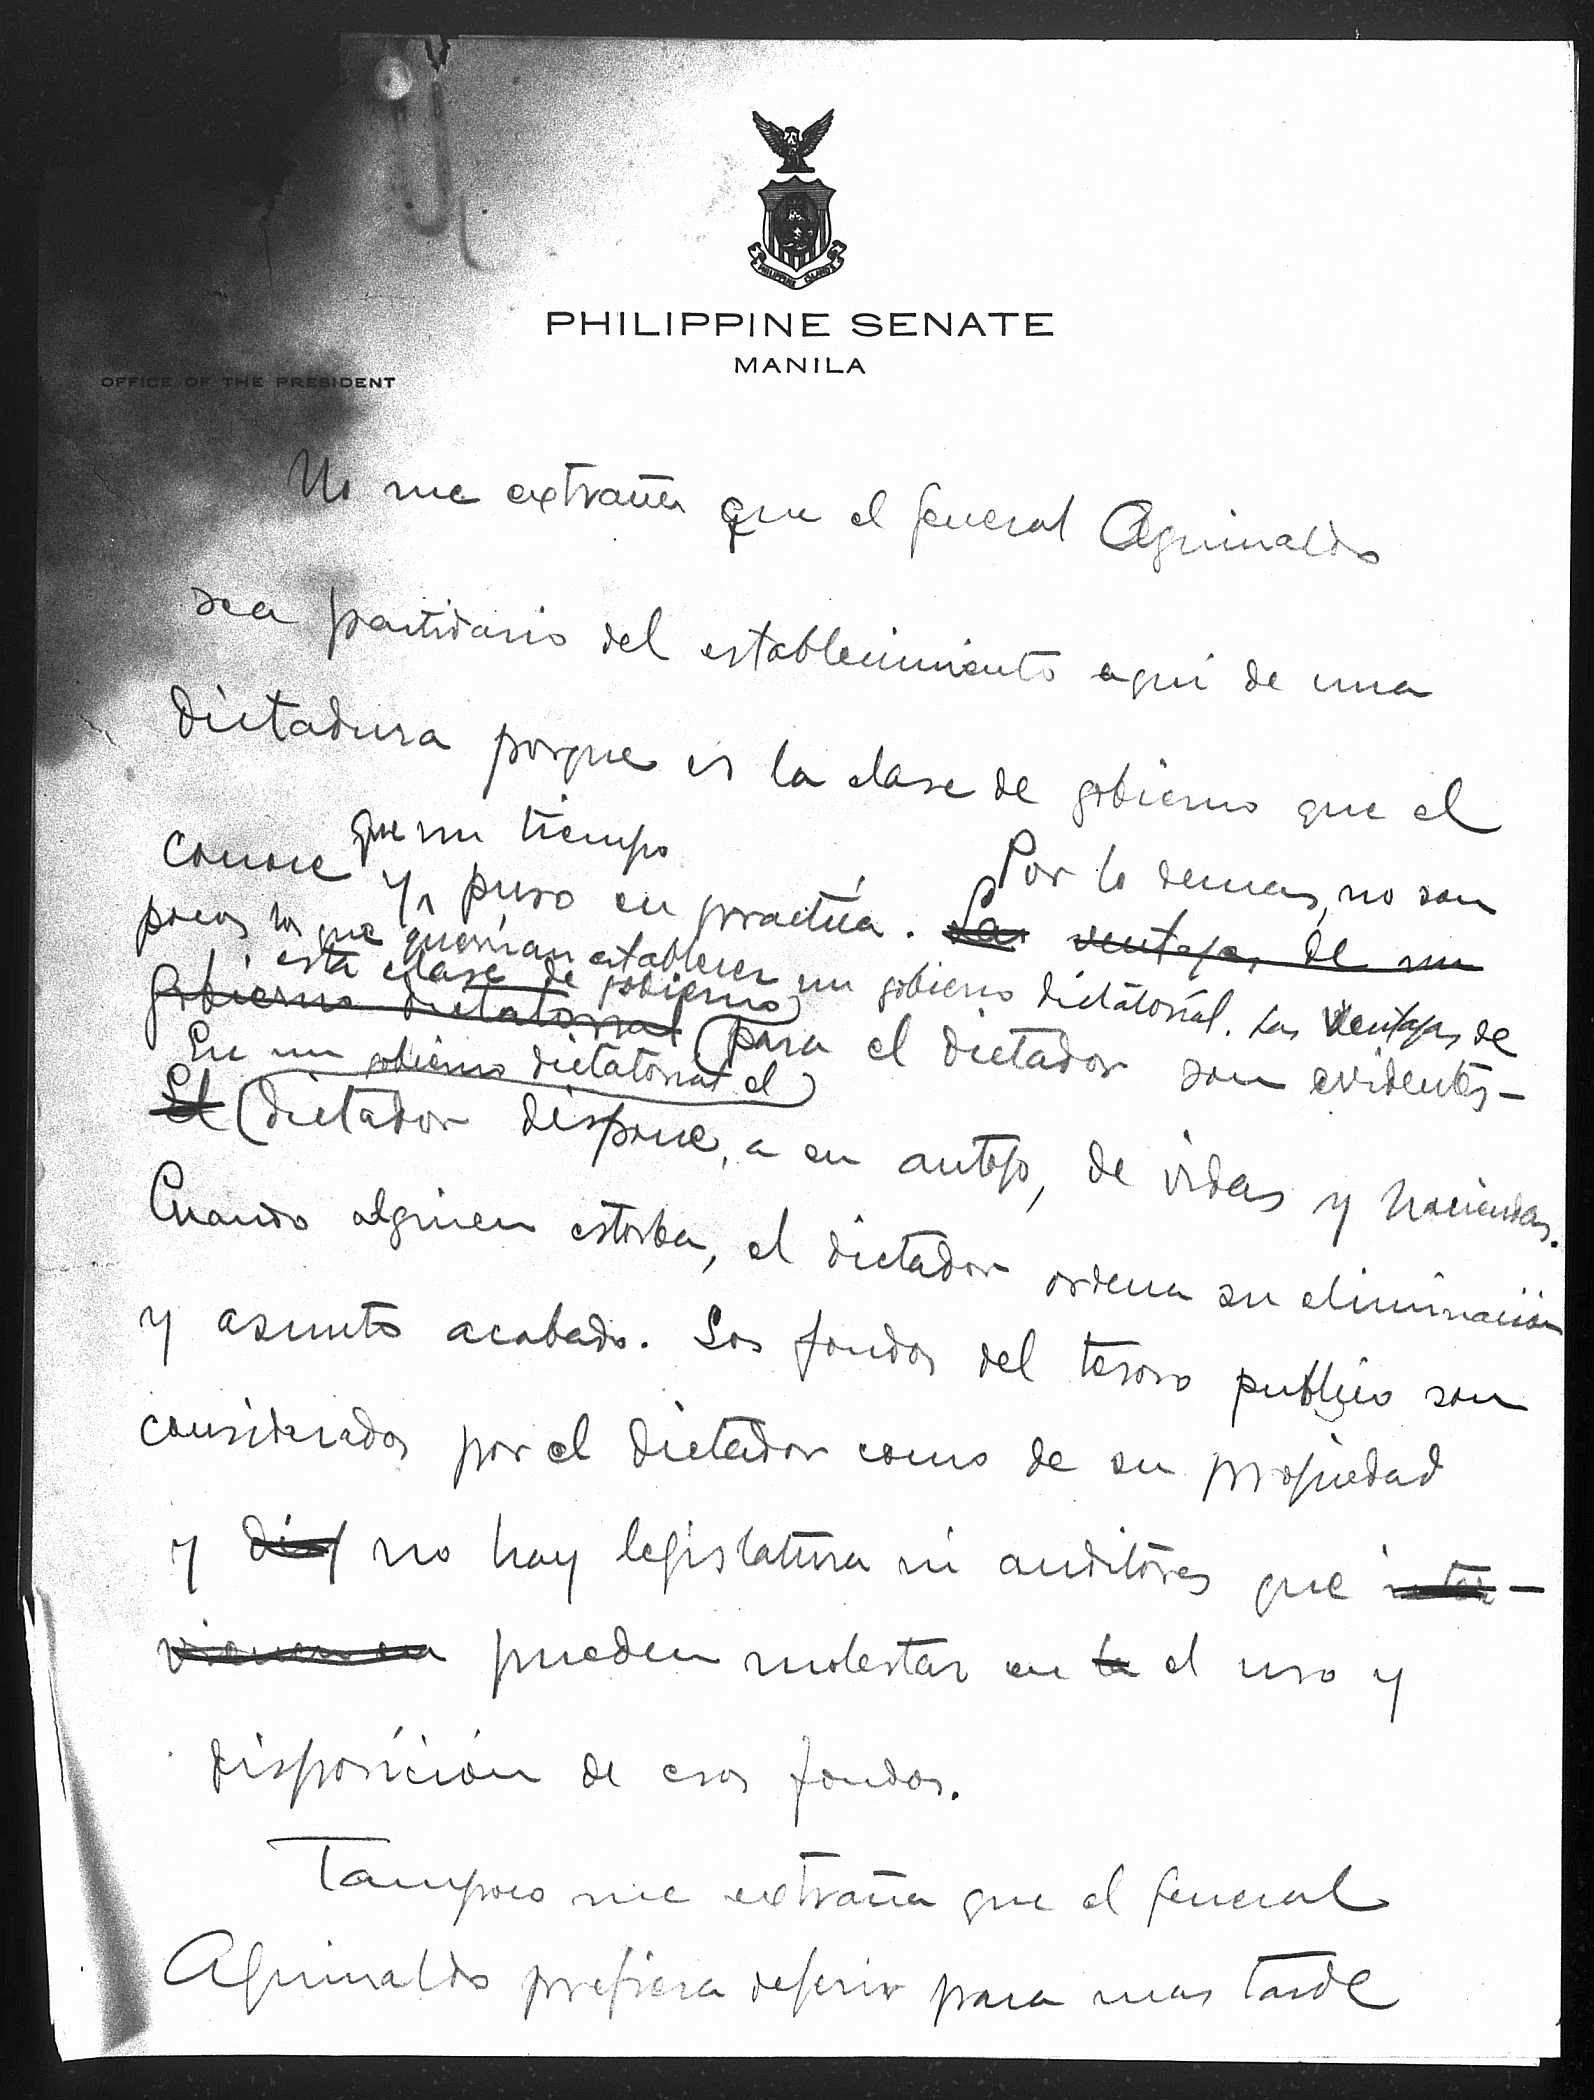 PHILIPPINE ISLANDS
PHILIPPINE SENATE
MANILA
OFFICE OF THE PRESIDENT
No me extraña que el general Aguinaldo
sea partidario del establecimiento aqui de una
dictadura porque es la clase de gobierno que el
conoce y que un tiempo puso en práctica. Por lo demas, no son
pocos los que querrian establecer un gobierno dictatorial. Las ventajas de
Las ventajas de un
gobierno dictatorial
esta clase de gobierno para el dictador son evidentes-
En un gobierno dictatorial el
El dictador dispone, a su antojo, de vidas y haciendas.
Cuando alguien estorba, el dictador ordena su eliminación
y asunto acabado. Los fondos del tesoro publico son
considerados por el dictador como de su propiedad
y dis no hay legislatura ni auditores que inter-
vienen en pueden molestar en la el uso y
disposición de esos fondos.
Tampoco me extraña que el general
Aguinaldo prefiera deferir para mas tarde